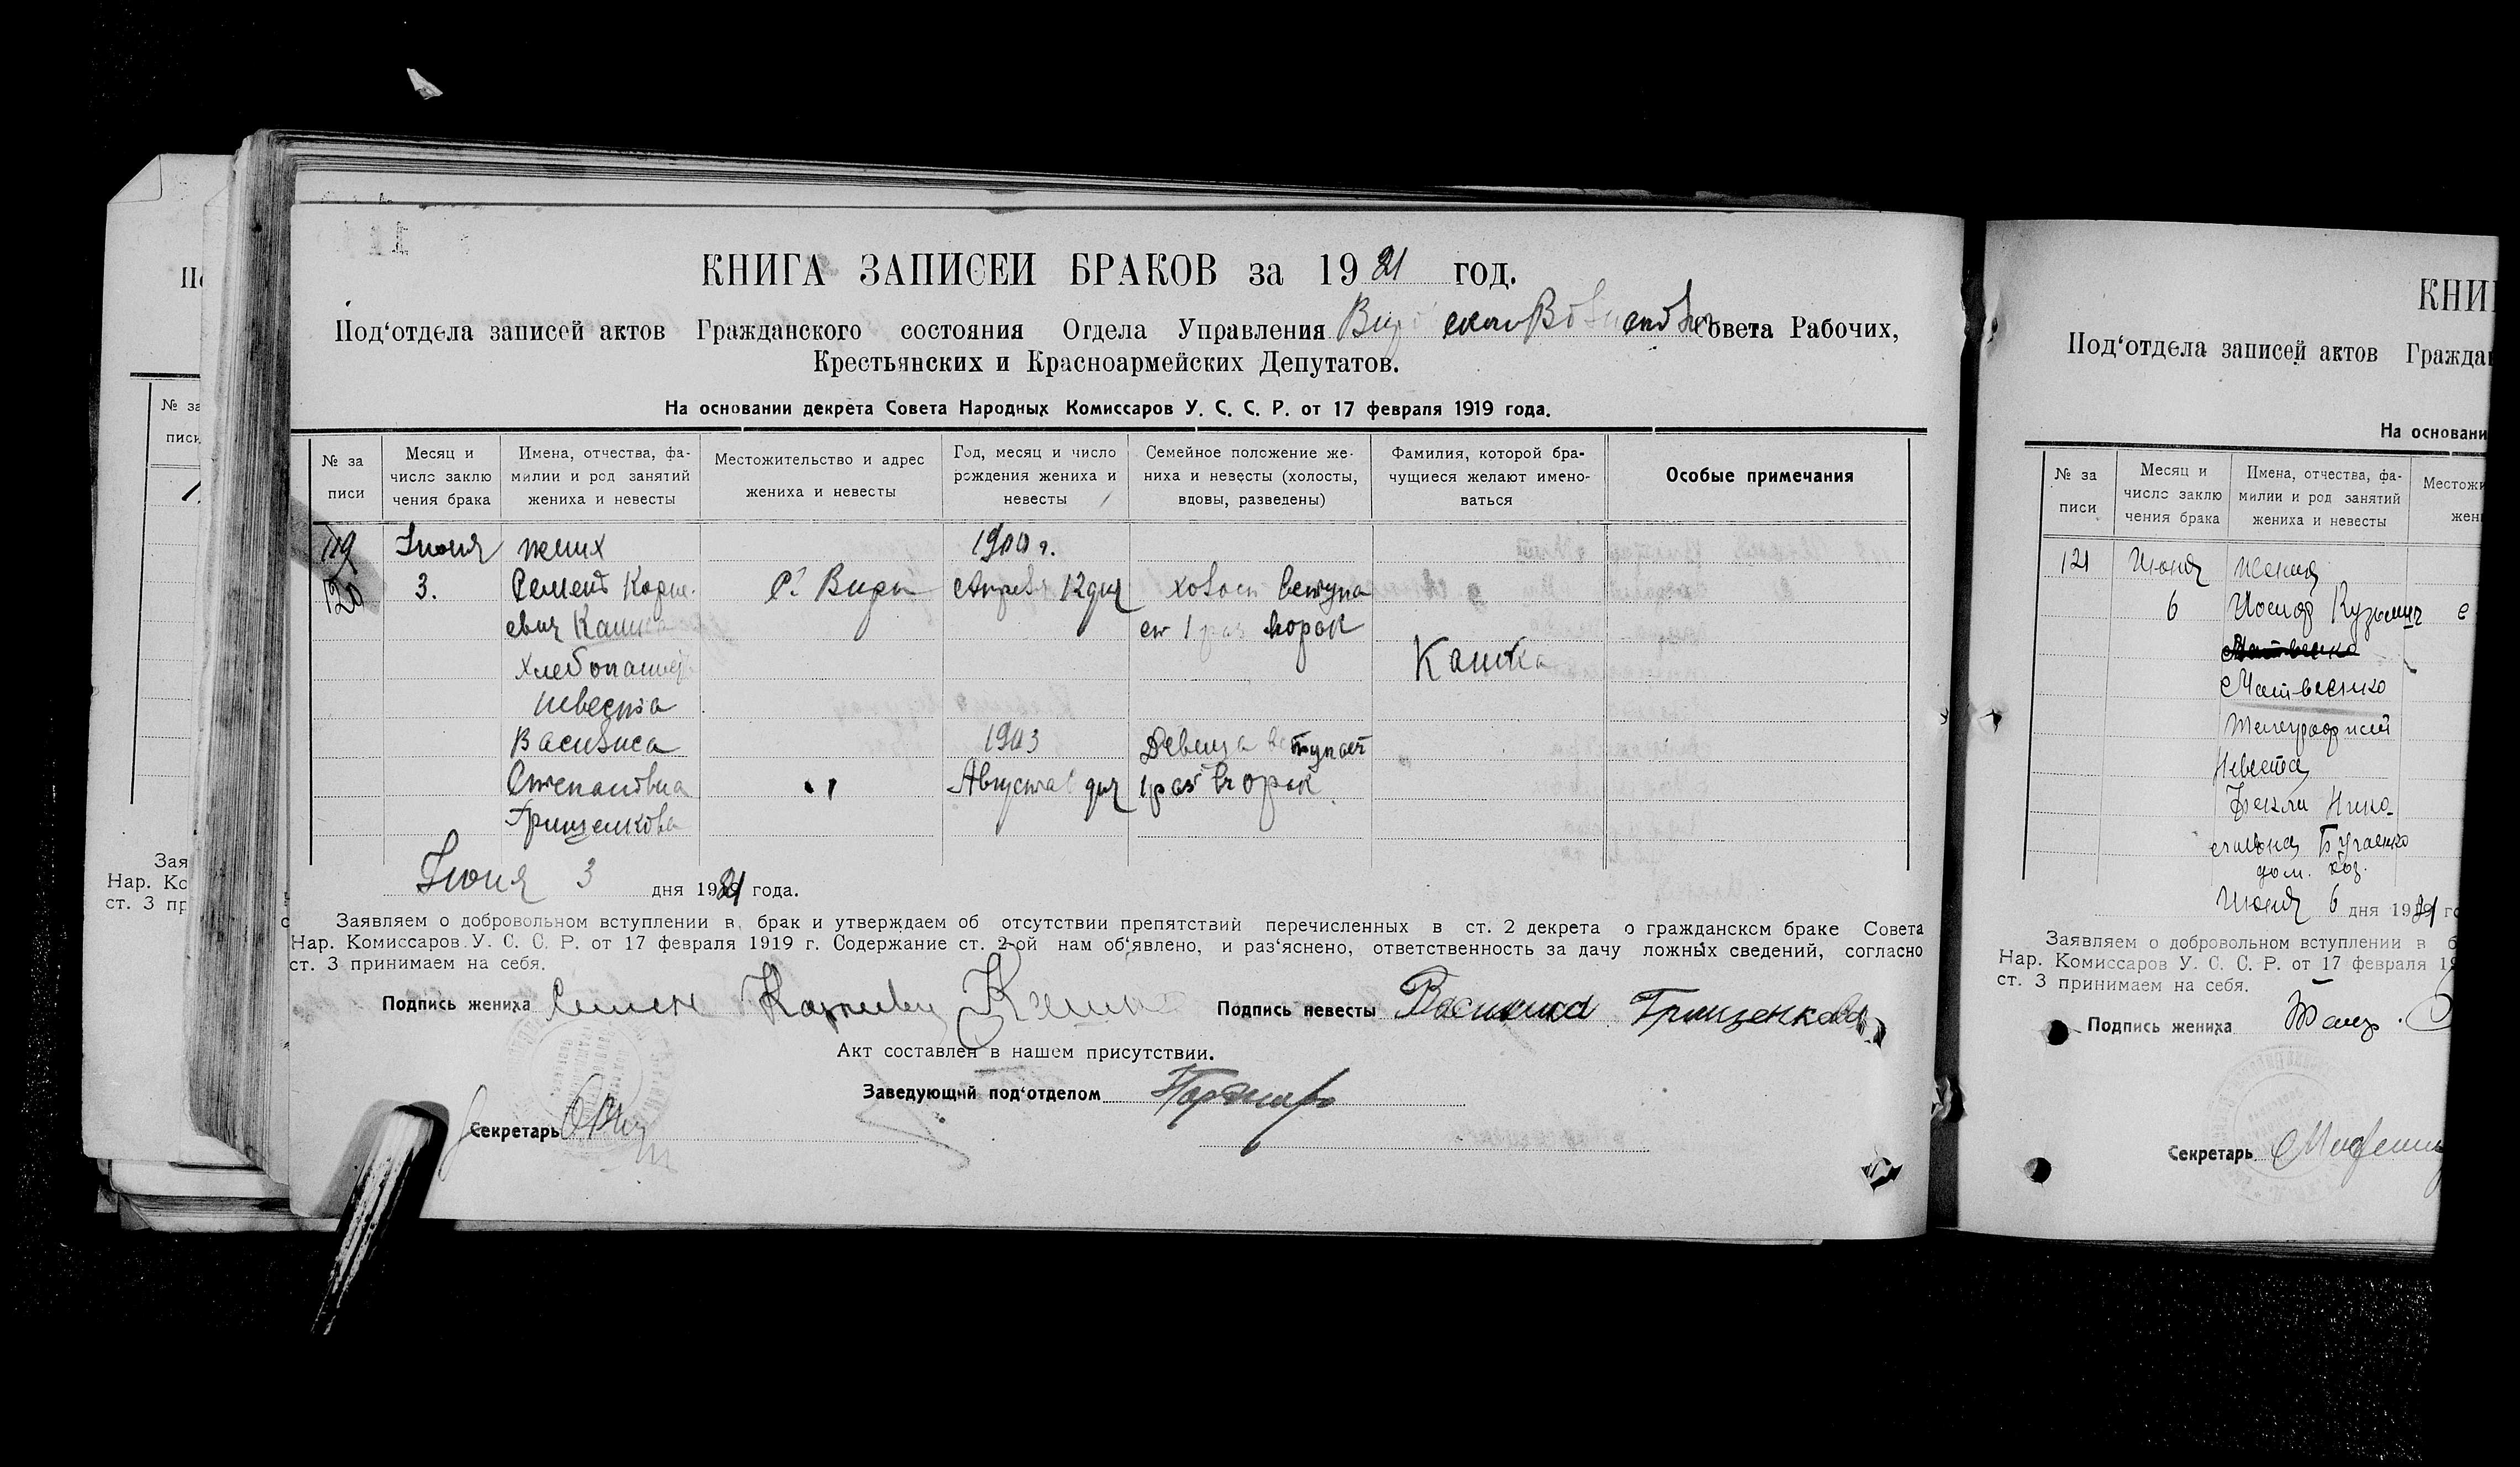 КНИГА ЗАПИСЕЙ БРАКОВ за 1921 год.
Под‘отдела записей актов Гражданского состояния Отдела Управления Совета Рабочих,
Крестьянских и Красноармейских Депутатов.
На основании декрета Совета Народных Комиссаров У. С. С. Р. от 17 февраля 1919 года.
№ за писи
Месяц и число заклю чения брака
Имена, отчества, фа- милии и род занятий жениха и невесты
Местожительство и адрес жениха и невесты
Год, месяц и число рождения жениха и невесты
Семейное положение же- ниха и невесты (холосты, вдовы, разведены)
Фамилия, которой бра- чущиеся желают имено- ваться
Особые примечания
119 Июня жених 1900 г.
120 3. Семен Корне- с. Виры 12 дня холост вступа
евич ет 1 раз
Кашка
невеста
Василиса 1903 Девица вступает
Степановна " Августа дня 1 раз в брак
Грищенкова
Июня 3 дня 1921 года.
Заявляем о добровольном вступлении в брак и утверждаем об отсутствии препятствий перечисленных в ст. 2 декрета о гражданском браке Совета
Нар. Комиссаров У. С. С. Р. от 17 февраля 1919 г. Содержание ст. 2-ой нам об‘явлено, и раз‘яснено, ответственность за дачу ложных сведений, согласно
ст. 3 принимаем на себя.
Подпись жениха Семен Подпись невесты Василиса Грищенкова
Акт составлен в нашем присутствии.
Заведующий под‘отделом
Секретарь
КНИ
Под‘отдела записей актов Гражда
На основани
№ за писи
Месяц и число заклю чения брака
Имена, отчества, фа- милии и род занятий жениха и невесты
Местожи жен
121 Июня Жених
6 Иосиф Кузьмич с
Матвеенко
Невеста
Фекла Нико-
дом. хоз.
Июня 6 дня 1921 го
Заявляем о добровольном вступлении в б
Нар. Комиссаров У. С. С. Р. от 17 февраля 19
ст. 3 принимаем на себя.
Подпись жениха
Секретарь
№ за
писи
Зая
Нар. Ко
ст. 3 пр